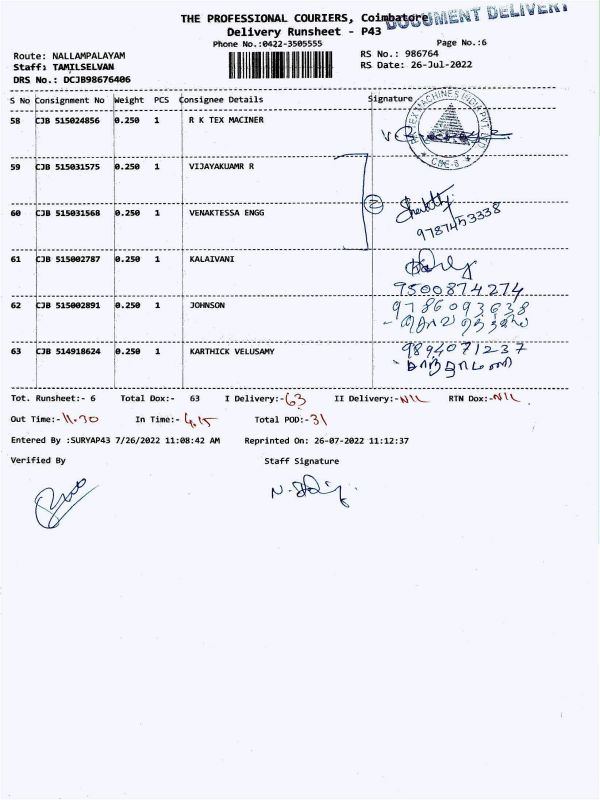 DOCUMENT DELIVERY
THE PROFESSIONAL COURIERS, Coimbatore
Delivery Runsheet - P43
Phone No.:0422-3505555
Page No.:6
Route: NALLAMPALAYAM
RS No.: 986764
Staff: TAMILSELVAN
RS Date: 26-Jul-2022
DRS No.: DCJB98676406
S No Consignment No Weight PCS Consignee Details Signature
58 CJB 515024856 0.250 1 R K TEX MACINER
59 CJB 515031575 0.250 1 VIJAYAKUAMR R
60 CJB 515031568 0.250 1 VENAKTESSA ENGG
2
9787453338
61 CJB 515002787 0.250 1 KALAIVANI
9500874274
62 CJB 515002891 0.250 1 JOHNSON
9786093638
63 CJB 514918624 0.250 1 KARTHICK VELUSAMY
9894071237
Tot. Runsheet:- 6 Total Dox:- 63 I Delivery:-63 II Delivery:-NIL RTN Dox:-NIL
Out Time:-11.30 In Time:- 4.15 Total POD:-31
Entered By :SURYAP43 7/26/2022 11:08:42 AM Reprinted On: 26-07-2022 11:12:37
Verified By Staff Signature